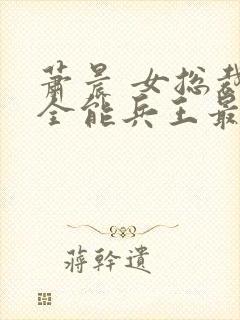 萧晨 女总裁
全能兵王最
蒋干遗